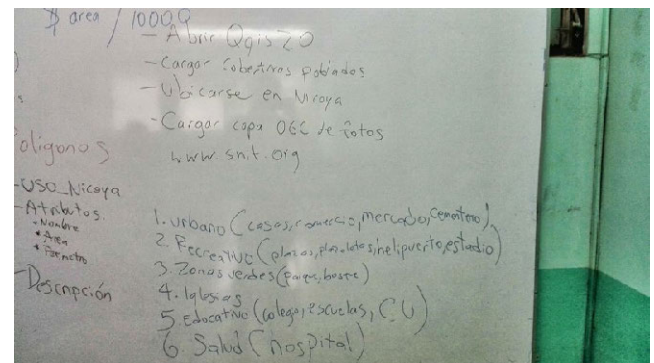 $ area / 10000
- Abrir Qgis 2.0
- Cargar poblados
- Ubicarse en Nicoya
- Cargar capa OGC de fotos
www.snit.org
oligonos
- USO_Nicoya
- Atributos
• Nombre
* Area
- Descripción
1. Urbano (casas, comercio, mercado, cementerio)
2. Recreativo (plazas, helipuerto, estadio)
3. Zonas verdes (parque, bosque)
4. Iglesias
5. Educativo (colegio, escuelas, CU)
6. Salud (hospital)